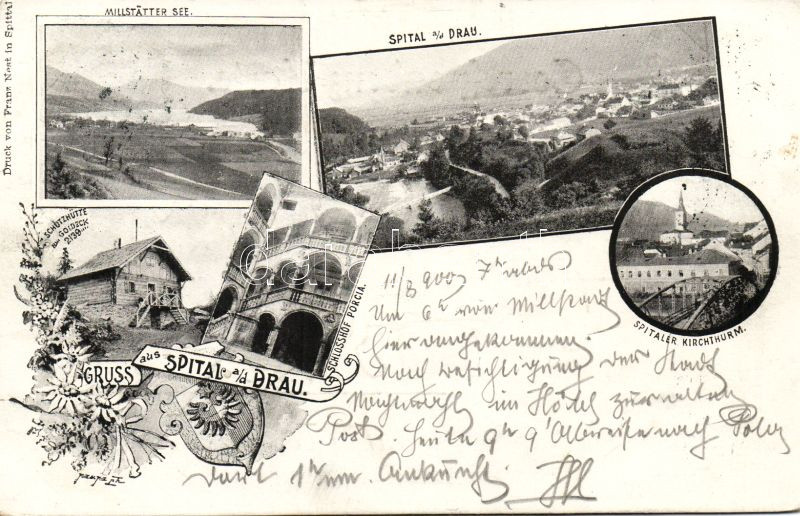 MILLSTÄTTER SEE.
SPITAL a/d DRAU.
Druck von Franz Nest in Spittal
SCHUTZHÜTTE
am GOLDECK
2139 m.
SCHLOSSHOF PORCIA.
SPITALER KIRCHTHURM.
GRUSS aus SPITAL a/d DRAU.
darabanth
11/8 900 7h abds
Um 6h von Millstatt
hier angekommen.
Nach Besichtigung der Stadt
Nachtmahl im Hotel zur alten
Post. Heute 9h 9' Abreise nach
Dort 1h nm. Ankunft.